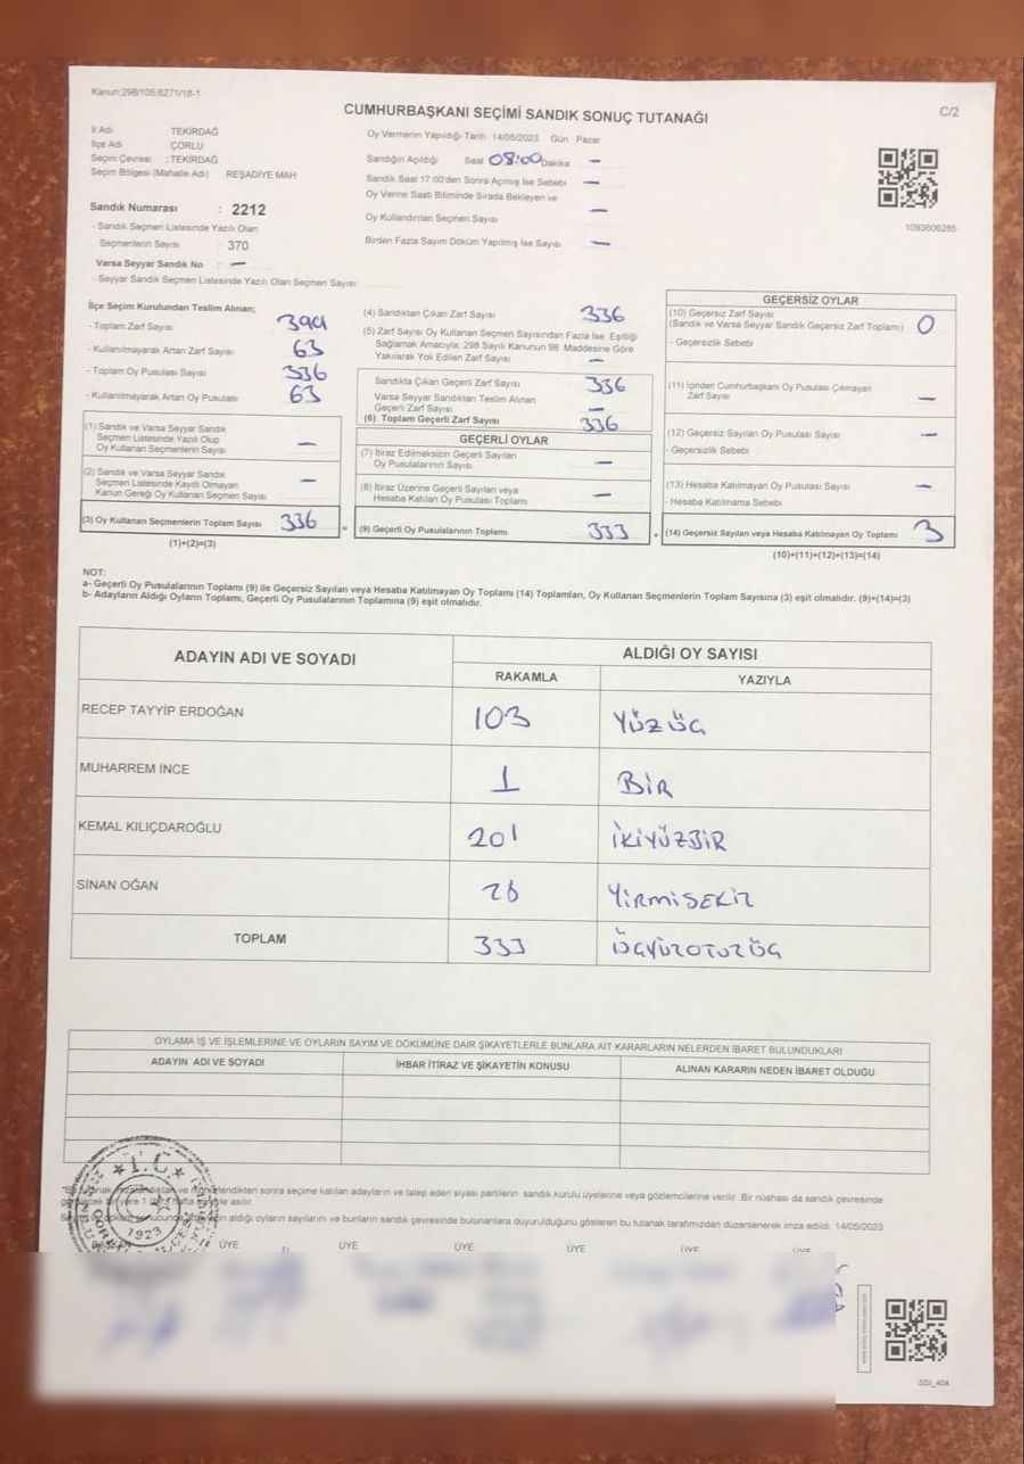 Kanun:298/105;6271/18-1
CUMHURBAŞKANI SEÇİMİ SANDIK SONUÇ TUTANAĞI
C/2
İl Adı TEKİRDAĞ
İlçe Adı ÇORLU
Seçim Çevresi : TEKİRDAĞ
Seçim Bölgesi (Mahalle Adı) REŞADİYE MAH
Sandık Numarası : 2212
- Sandık Seçmen Listesinde Yazılı Olan
Seçmenlerin Sayısı 370
Varsa Seyyar Sandık No —
- Seyyar Sandık Seçmen Listesinde Yazılı Olan Seçmen Sayısı
Oy Vermenin Yapıldığı Tarih 14/05/2023 Gün Pazar
Sandığın Açıldığı Saat 08:00 Dakika —
Sandık Saat 17:00'den Sonra Açılmış İse Sebebi —
Oy Verme Saati Bitiminde Sırada Bekleyen ve
Oy Kullandırılan Seçmen Sayısı —
Birden Fazla Sayım Döküm Yapılmış İse Sayısı —
1093606285
İlçe Seçim Kurulundan Teslim Alınan;
- Toplam Zarf Sayısı 399
- Kullanılmayarak Artan Zarf Sayısı 63
- Toplam Oy Pusulası Sayısı 336
- Kullanılmayarak Artan Oy Pusulası 63
(1) Sandık ve Varsa Seyyar Sandık
Seçmen Listesinde Yazılı Olup
Oy Kullanan Seçmenlerin Sayısı —
(2) Sandık ve Varsa Seyyar Sandık
Seçmen Listesinde Kayıtlı Olmayan
Kanun Gereği Oy Kullanan Seçmen Sayısı —
(3) Oy Kullanan Seçmenlerin Toplam Sayısı 336
(1)+(2)=(3)
(4) Sandıktan Çıkan Zarf Sayısı 336
(5) Zarf Sayısı Oy Kullanan Seçmen Sayısından Fazla İse Eşitliği
Sağlamak Amacıyla; 298 Sayılı Kanunun 98. Maddesine Göre
Yakılarak Yok Edilen Zarf Sayısı —
Sandıkta Çıkan Geçerli Zarf Sayısı 336
Varsa Seyyar Sandıktan Teslim Alınan
Geçerli Zarf Sayısı —
(6) Toplam Geçerli Zarf Sayısı 336
GEÇERLİ OYLAR
(7) İtiraz Edilmeksizin Geçerli Sayılan
Oy Pusulalarının Sayısı —
(8) İtiraz Üzerine Geçerli Sayılan veya
Hesaba Katılan Oy Pusulası Toplamı —
(9) Geçerli Oy Pusulalarının Toplamı 333
GEÇERSİZ OYLAR
(10) Geçersiz Zarf Sayısı
(Sandık ve Varsa Seyyar Sandık Geçersiz Zarf Toplamı) 0
- Geçersizlik Sebebi
(11) İçinden Cumhurbaşkanı Oy Pusulası Çıkmayan
Zarf Sayısı —
(12) Geçersiz Sayılan Oy Pusulası Sayısı —
- Geçersizlik Sebebi
(13) Hesaba Katılmayan Oy Pusulası Sayısı —
- Hesaba Katılmama Sebebi
(14) Geçersiz Sayılan veya Hesaba Katılmayan Oy Toplamı 3
(10)+(11)+(12)+(13)=(14)
NOT:
a- Geçerli Oy Pusulalarının Toplamı (9) ile Geçersiz Sayılan veya Hesaba Katılmayan Oy Toplamı (14) Toplamları, Oy Kullanan Seçmenlerin Toplam Sayısına (3) eşit olmalıdır. (9)+(14)=(3)
b- Adayların Aldığı Oyların Toplamı, Geçerli Oy Pusulalarının Toplamına (9) eşit olmalıdır.
ADAYIN ADI VE SOYADI ALDIĞI OY SAYISI
RAKAMLA YAZIYLA
RECEP TAYYİP ERDOĞAN 103 YÜZÜÇ
MUHARREM İNCE 1 BİR
KEMAL KILIÇDAROĞLU 201 İKİYÜZBİR
SİNAN OĞAN 28 YİRMİSEKİZ
TOPLAM 333 ÜÇYÜZOTUZÜÇ
OYLAMA İŞ VE İŞLEMLERİNE VE OYLARIN SAYIM VE DÖKÜMÜNE DAİR ŞİKAYETLERLE BUNLARA AİT KARARLARIN NELERDEN İBARET BULUNDUKLARI
ADAYIN ADI VE SOYADI İHBAR İTİRAZ VE ŞİKAYETİN KONUSU ALINAN KARARIN NEDEN İBARET OLDUĞU
T.C.
1923
sonra seçime katılan adayların ve talep eden siyasi partilerin sandık kurulu üyelerine veya gözlemcilerine verilir. Bir nüshası da sandık çevresinde
asılır.
aldığı oyların sayılarını ve bunların sandık çevresinde bulunanlara duyurulduğunu gösteren bu tutanak tarafımızdan düzenlenerek imza edildi. 14/05/2023
ÜYE ÜYE ÜYE ÜYE ÜYE ÜYE